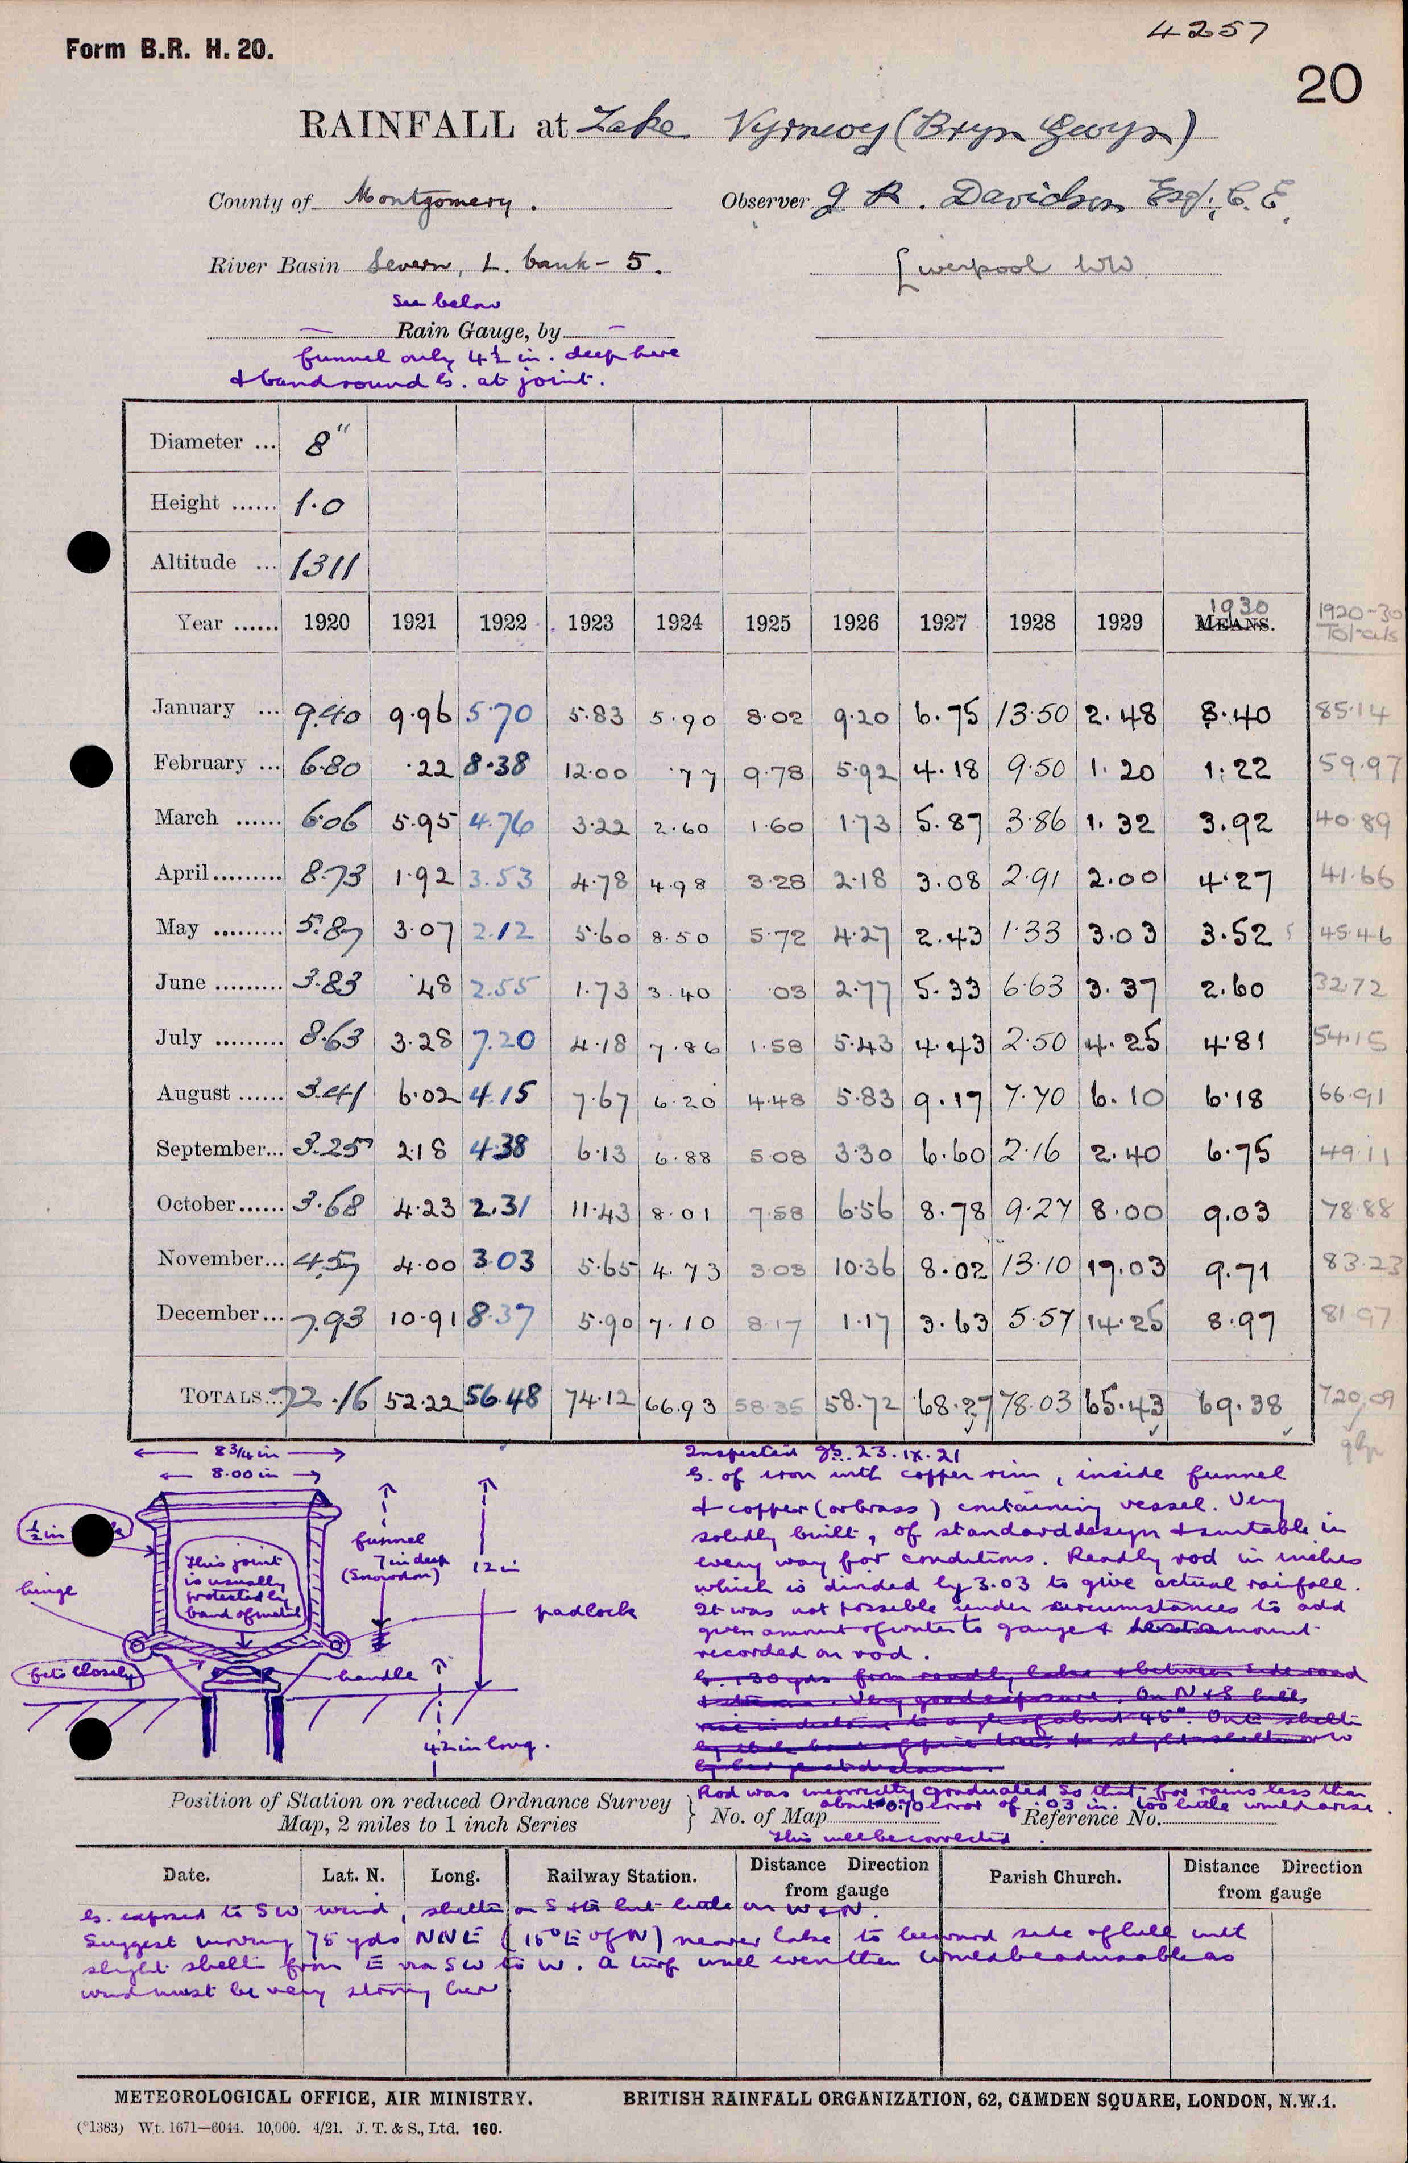 4257
Form B.R. H. 20.
20
RAINFALL at Lake Vyrnwy (Bryn Gwyn)
County of Montgomery. Observer J R. Davidson Esq., C.E.
River Basin Severn, L. bank - 5. Liverpool WW.
See below
— Rain Gauge, by —
funnel only 4½ in. deep here
& band round G. at joint.
Diameter ... 8"
Height ...... 1.0
Altitude ... 1311
Year ...... 1920 1921 1922 1923 1924 1925 1926 1927 1928 1929 MEANS. 1930 1920-30 Totals
January ... 9.40 9.96 5.70 5.83 5.90 8.02 9.20 6.75 13.50 2.48 8.40 85.14
February ... 6.80 .22 8.38 12.00 .77 9.78 5.92 4.18 9.50 1.20 1.22 59.97
March ...... 6.06 5.95 4.76 3.22 2.60 1.60 1.73 5.87 3.86 1.32 3.92 40.89
April ......... 8.73 1.92 3.53 4.78 4.98 3.28 2.18 3.08 2.91 2.00 4.27 41.66
May ......... 5.87 3.07 2.12 5.60 8.50 5.72 4.27 2.43 1.33 3.03 3.52 45.46
June ......... 3.83 .48 2.55 1.73 3.40 .03 2.77 5.33 6.63 3.37 2.60 32.72
July ......... 8.63 3.28 7.20 4.18 7.86 1.58 5.43 4.43 2.50 4.25 4.81 54.15
August ...... 3.41 6.02 4.15 7.67 6.20 4.48 5.83 9.17 7.70 6.10 6.18 66.91
September... 3.25 2.18 4.38 6.13 6.88 5.08 3.30 6.60 2.16 2.40 6.75 49.11
October...... 3.68 4.23 2.31 11.43 8.01 7.58 6.56 8.78 9.27 8.00 9.03 78.88
November... 4.57 4.00 3.03 5.65 4.73 3.03 10.36 8.02 13.10 17.03 9.71 83.23
December... 7.93 10.91 8.37 5.90 7.10 8.17 1.17 3.63 5.57 14.25 8.97 81.97
TOTALS... 72.16 52.22 56.48 74.12 66.93 58.35 58.72 68.27 78.03 65.43 69.38 720.09
8 3/4 in
8.00 in
½ in
hinge
This joint
is usually
protected by
band of metal
fits closely
funnel
7 in deep
(Snowdon)
12 in
padlock
handle
42 in long.
Inspected 23.IX.21
G. of iron with copper rim, inside funnel
& copper (or brass) containing vessel. Very
solidly built, of standard design & suitable in
every way for conditions. Readly rod in inches
which is divided by 3.03 to give actual rainfall.
It was not possible under circumstances to add
given amount of water to gauge & amount
recorded on rod.
Rod was incorrectly graduated so that for rains less than
about 0.70 error of .03 in. too little would arise.
This will be corrected.
Position of Station on reduced Ordnance Survey
Map, 2 miles to 1 inch Series
No. of Map Reference No.
Date. Lat. N. Long. Railway Station. Distance Direction from gauge Parish Church. Distance Direction from gauge
G. exposed to SW wind, shelter on S & E but little on W & N.
Suggest moving 75 yds NNE (15° E of N) nearer lake to leeward side of hill with
slight shelter from E via SW to W. A turf wall even then would be advisable as
wind must be very strong here
METEOROLOGICAL OFFICE, AIR MINISTRY. BRITISH RAINFALL ORGANIZATION, 62, CAMDEN SQUARE, LONDON, N.W.1.
(*1383) Wt. 1671—6044. 10,000. 4/21. J. T. & S., Ltd. 160.